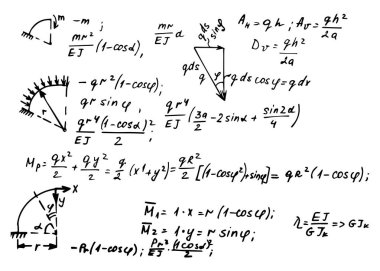 m -m ;
mr²/EJ (1-cosα), mr/EJ α
qds qds sinφ
A_H = qh ; A_V = qh²/2a
D_V = qh²/2a
q φ qds cosφ = qdx
-qr²(1-cosφ);
qr sinφ ,
r
qr⁴/EJ (1-cosα)²/2 ; qr⁴/EJ (3α/2 - 2sinα + sin2α/4)
M_P = qx²/2 + qy²/2 = q/2 (x²+y²) = qR²/2 [(1-cosφ²)+sinφ] = qR²(1-cosφ);
x
φ y
α
r
M̅₁ = 1·x = r(1-cosφ);
M̅₂ = 1·y = r sinφ;
η = EJ/GJ_k => GJ_k
-Pr(1-cosφ); Pr²/EJ · (1-cosα)²/2 ;